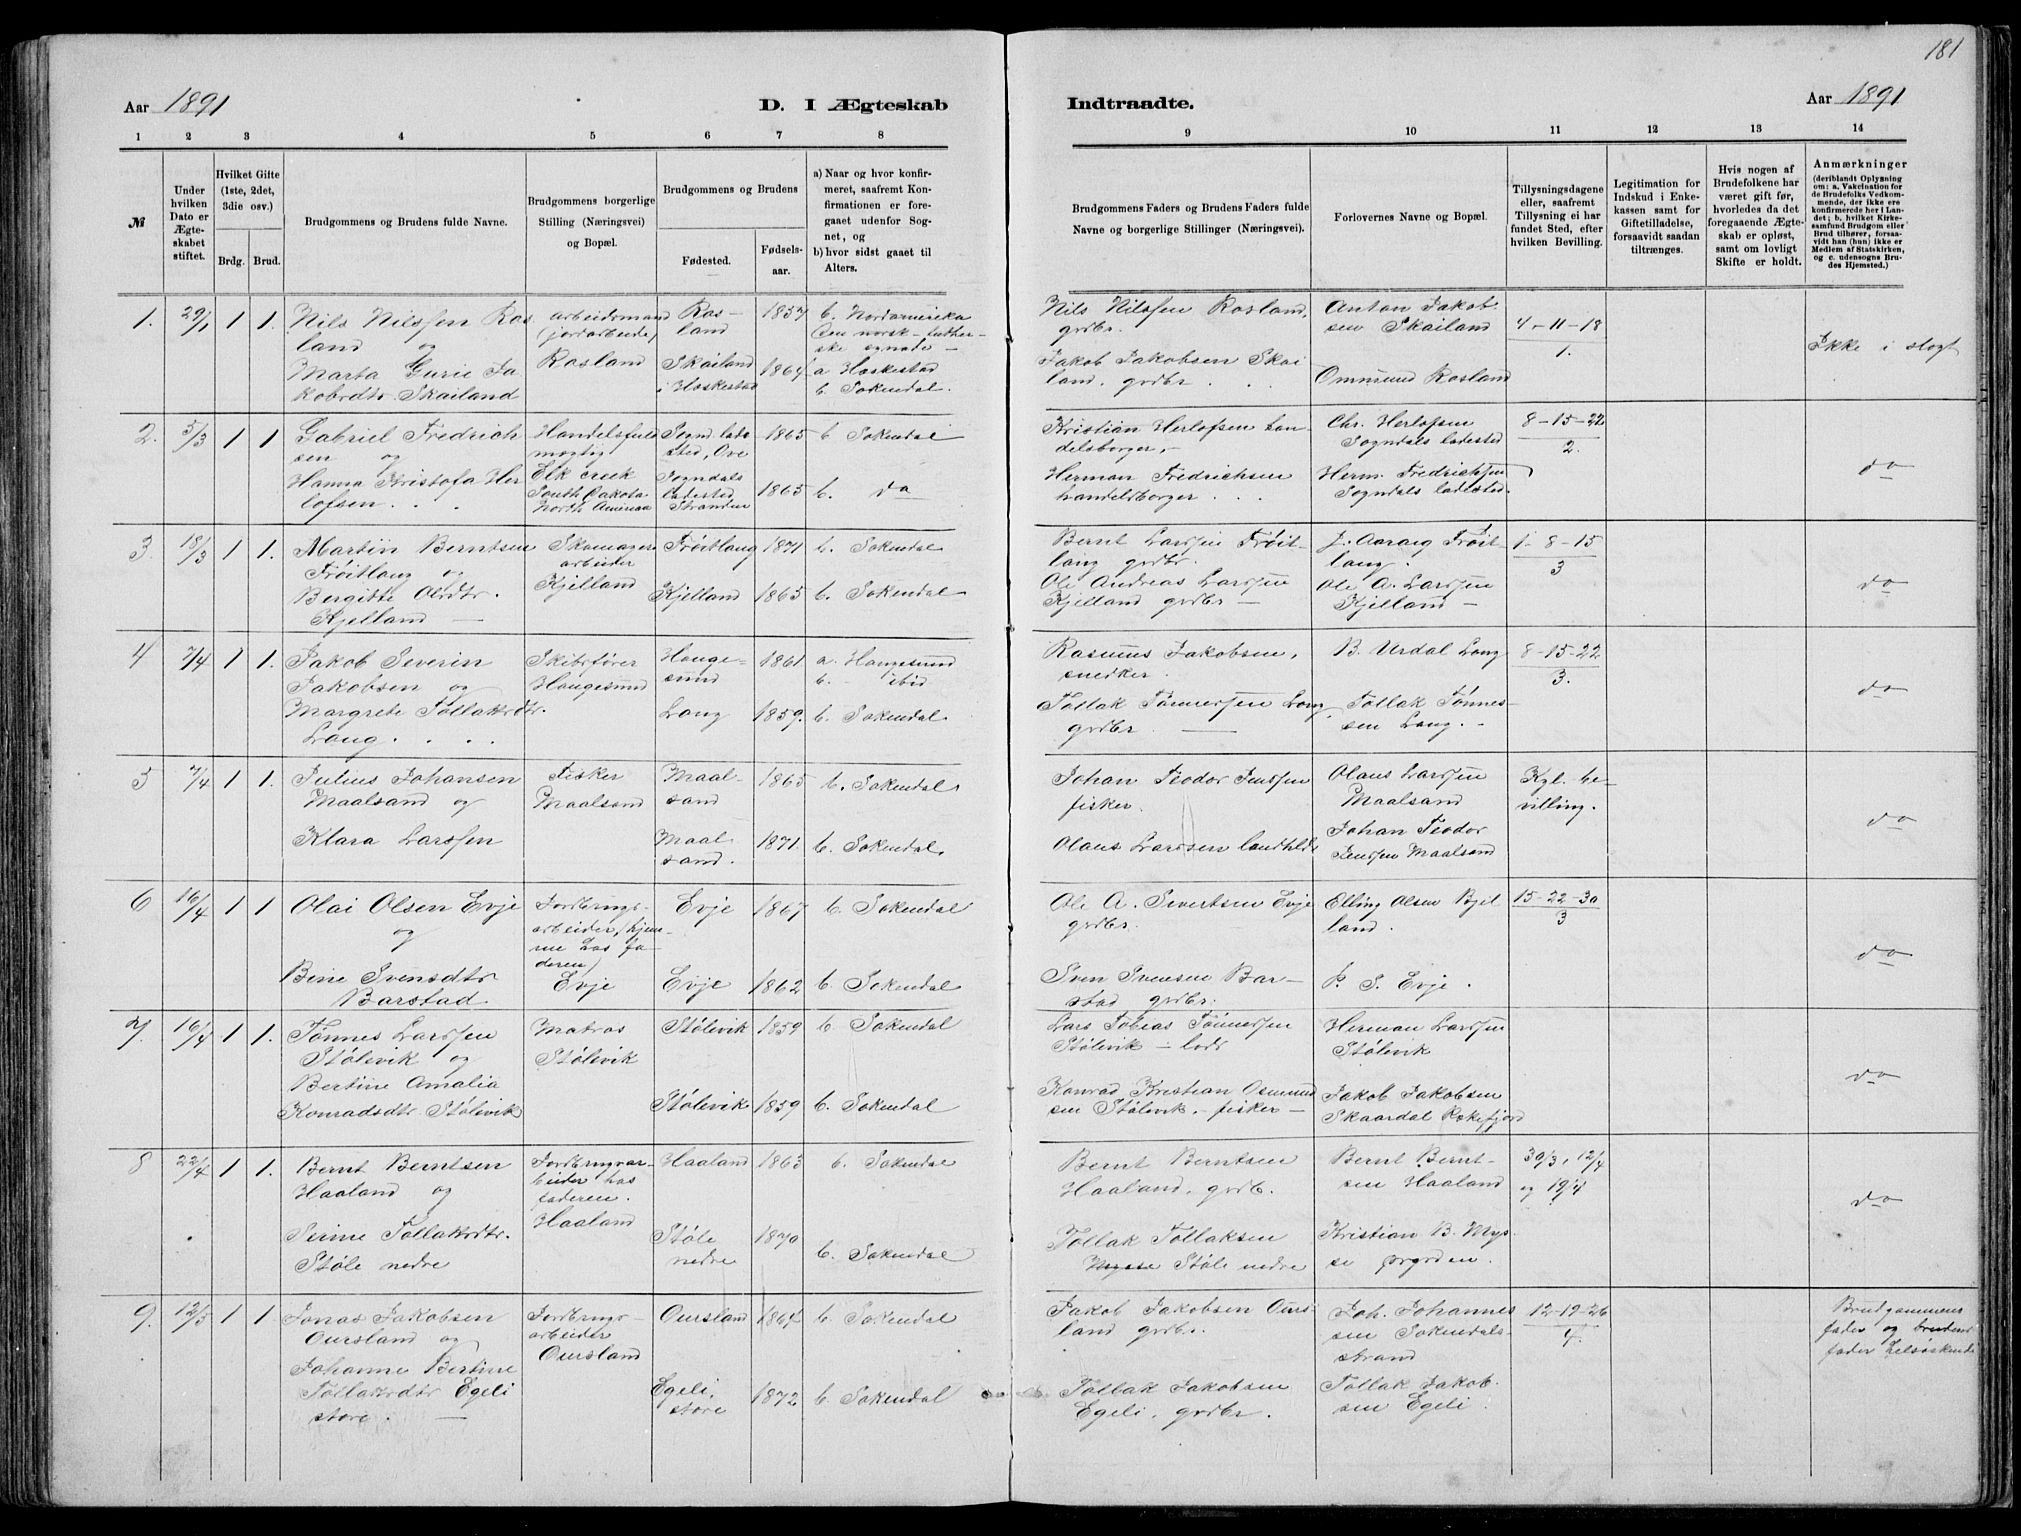 181
Aar 1891
D. I Ægteskab
Indtraadte.
Aar 1891
1 2 3 4 5 6 7 8 9 10 11 12 13 14
№
Under hvilken Dato er Ægteskabet stiftet.
Hvilket Gifte (1ste, 2det, 3die osv.)
Brdg. Brud.
Brudgommens og Brudens fulde Navne.
Brudgommens borgerlige Stilling (Næringsvei) og Bopæl.
Brudgommens og Brudens
Fødested. Fødselsaar.
a) Naar og hvor konfirmeret, saafremt Konfirmationen er foregaaet udenfor Sognet, og
b) hvor sidst gaaet til Alters.
Brudgommens Faders og Brudens Faders fulde Navne og borgerlige Stillinger (Næringsvei).
Forlovernes Navne og Bopæl.
Tillysningsdagene eller, saafremt Tillysning ei har fundet Sted, efter hvilken Bevilling.
Legitimation for Indskud i Enkekassen samt for Giftetilladelse, forsaavidt saadan tiltrænges.
Hvis nogen af Brudefolkene har været gift før, hvorledes da det foregaaende Ægteskab er opløst, samt om lovligt Skifte er holdt.
Anmærkninger
(deriblandt Oplysning om: a. Vakcination for de Brudefolks Vedkommende, der ikke ere konfirmerede her i Landet; b. hvilket Kirkesamfund Brudgom eller Brud tilhører, forsaavidt han (hun) ikke er Medlem af Statskirken, og c. udensogns Brudes Hjemsted.)
1. 29/1 1 1. Nils Nilssen Ros
land og
Marta Gurie Ja
kobsdtr. Skailand
arbeidsmand
(jordarbeide)
Rosland
Ros-
land 1857
Skailand
i Heskestad 1864
b. Nordamerika
Den norsk-luther-
ske synode -
a Heskestad
b. Sokendal.
Nils Nilssen Rosland,
grdbr.
Jakob Jakobsen Skai
land, grdbr . .
Anton Jakob
sen Skailand
Ommund Rosland
4-11-18
1.
Ikke i slægt
2. 5/3 1 1 Gabriel Fredrich
sen og
Hanna Kristofa Her
lofsen . . .
Handelsfuld
mægtig
Elk creek
South Dakota
North America
Sognd. lade
sted, Øvre 1865
Sogndals
Ladested
Stranden 1865
b. Sokendal
b. do
Kristian Herlofsen han
delsborger,
Herman Fredrichsen
handelsborger . .
Chr. Herlofsen
Sogndals ladested
Herm. Fredrichsen
Sogndals ladested.
8-15-22
2.
do
3. 18/3 1 1. Martin Berntsen
Frøitlang og
Bergitte Olsdtr.
Kjelland -
Skomager
arbeider
Kjelland
Frøitlang 1871
Kjelland 1865
b. Sokendal
b. Sokendal
Bernt Larssen Frøit-
lang grdbr.
Ole Andreas Larssen
Kjelland grdbr -
J. Aarøig Frøit-
lang.
Ole A. Larssen
Kjelland -
1-8-15
3
do
4 7/4 1 1. Jakob Severin
Jakobsen og
Margrete Tollaksdtr.
Lang . . .
Skibsfører
Haugesund
Hauge-
sund 1861
Lang 1859.
a. Haugesund
b. - ibid
b. Sokendal
Rasmus Jakobsen,
snedker.
Tollak Tønnessen Lang,
grdbr. -
B. Urdal Lang
Tollak Tønnes-
sen Lang. -
8-15-22
3.
do
5 7/4 1 1. Julius Johansen
Maalsand og
Klara Larssen
Fisker
Maalsand
Maal-
sand 1865
Maal
sand. 1871
b. Sokendal
b. Sokendal
Johan Teodor Jenssen
fisker.
Olaus Larssen landhdl.
Olaus Larssen
Maalsand
Johan Teodor
Jenssen Maalsand
Kgl. be-
villing.
do
6 16/4 1 1 Olai Olsen Evje
og
Bine Svensdtr
Barstad
Jordbrugs-
arbeider, (hjem-
me hos fa-
deren)
Evje
Evje 1867
Evje 1862
b. Sokendal
b. Sokendal
Ole A. Sivertsen Evje
grdbr.
Sven Svensen Bar-
stad grdbr.
Elling Olsen Bjel
land.
P. S. Evje.
15-22-30
3
do
7. 16/4 1 1. Tønnes Larssen
Stølevik og
Bertine Amalia
Konradsdtr. Stølevik
Matros
Stølevik
Stølevik 1859
Stølevik 1859
b. Sokendal
b. Sokendal
Lars Tobias Tønnessen
Stølevik - lods
Konrad Kristian Osmund
sen Stølevik, fisker -
Herman Larssen
Stølevik
Jakob Jakobsen
Skaardal Rekefjord
do
8 22/4 1 1. Bernt Berntsen
Haaland og
Serine Tollaksdtr.
Støle nedre
Jordbrugsar-
beider hos
faderen.
Haaland
Haaland 1863
Støle
nedre 1870
b. Sokendal
b. Sokendal
Bernt Berntsen
Haaland, grdb.
Tollak Tollaksen
Støle nedre
Bernt Bernt-
sen Haaland
Kristian B. Mys
se
30/3, 12/4
og 19/4
do
9. 12/5 1 1. Jonas Jakobsen
Oursland og
Johanne Bertine
Tollaksdtr Egeli
store. -
Jordbrugs-
arbeider
Oursland
Oursland 1864
Egeli,
store 1872
b. Sokendal
b. Sokendal
Jakob Jakobsen Ours-
land grdbr.
Tollak Jakobsen
Egeli, grdbr.
Joh. Johannes
sen Sokendals-
strand
Tollak Jakob
sen Egeli.
12-19-26
4.
Brudgommens
fader og brudens
fader helsøskende